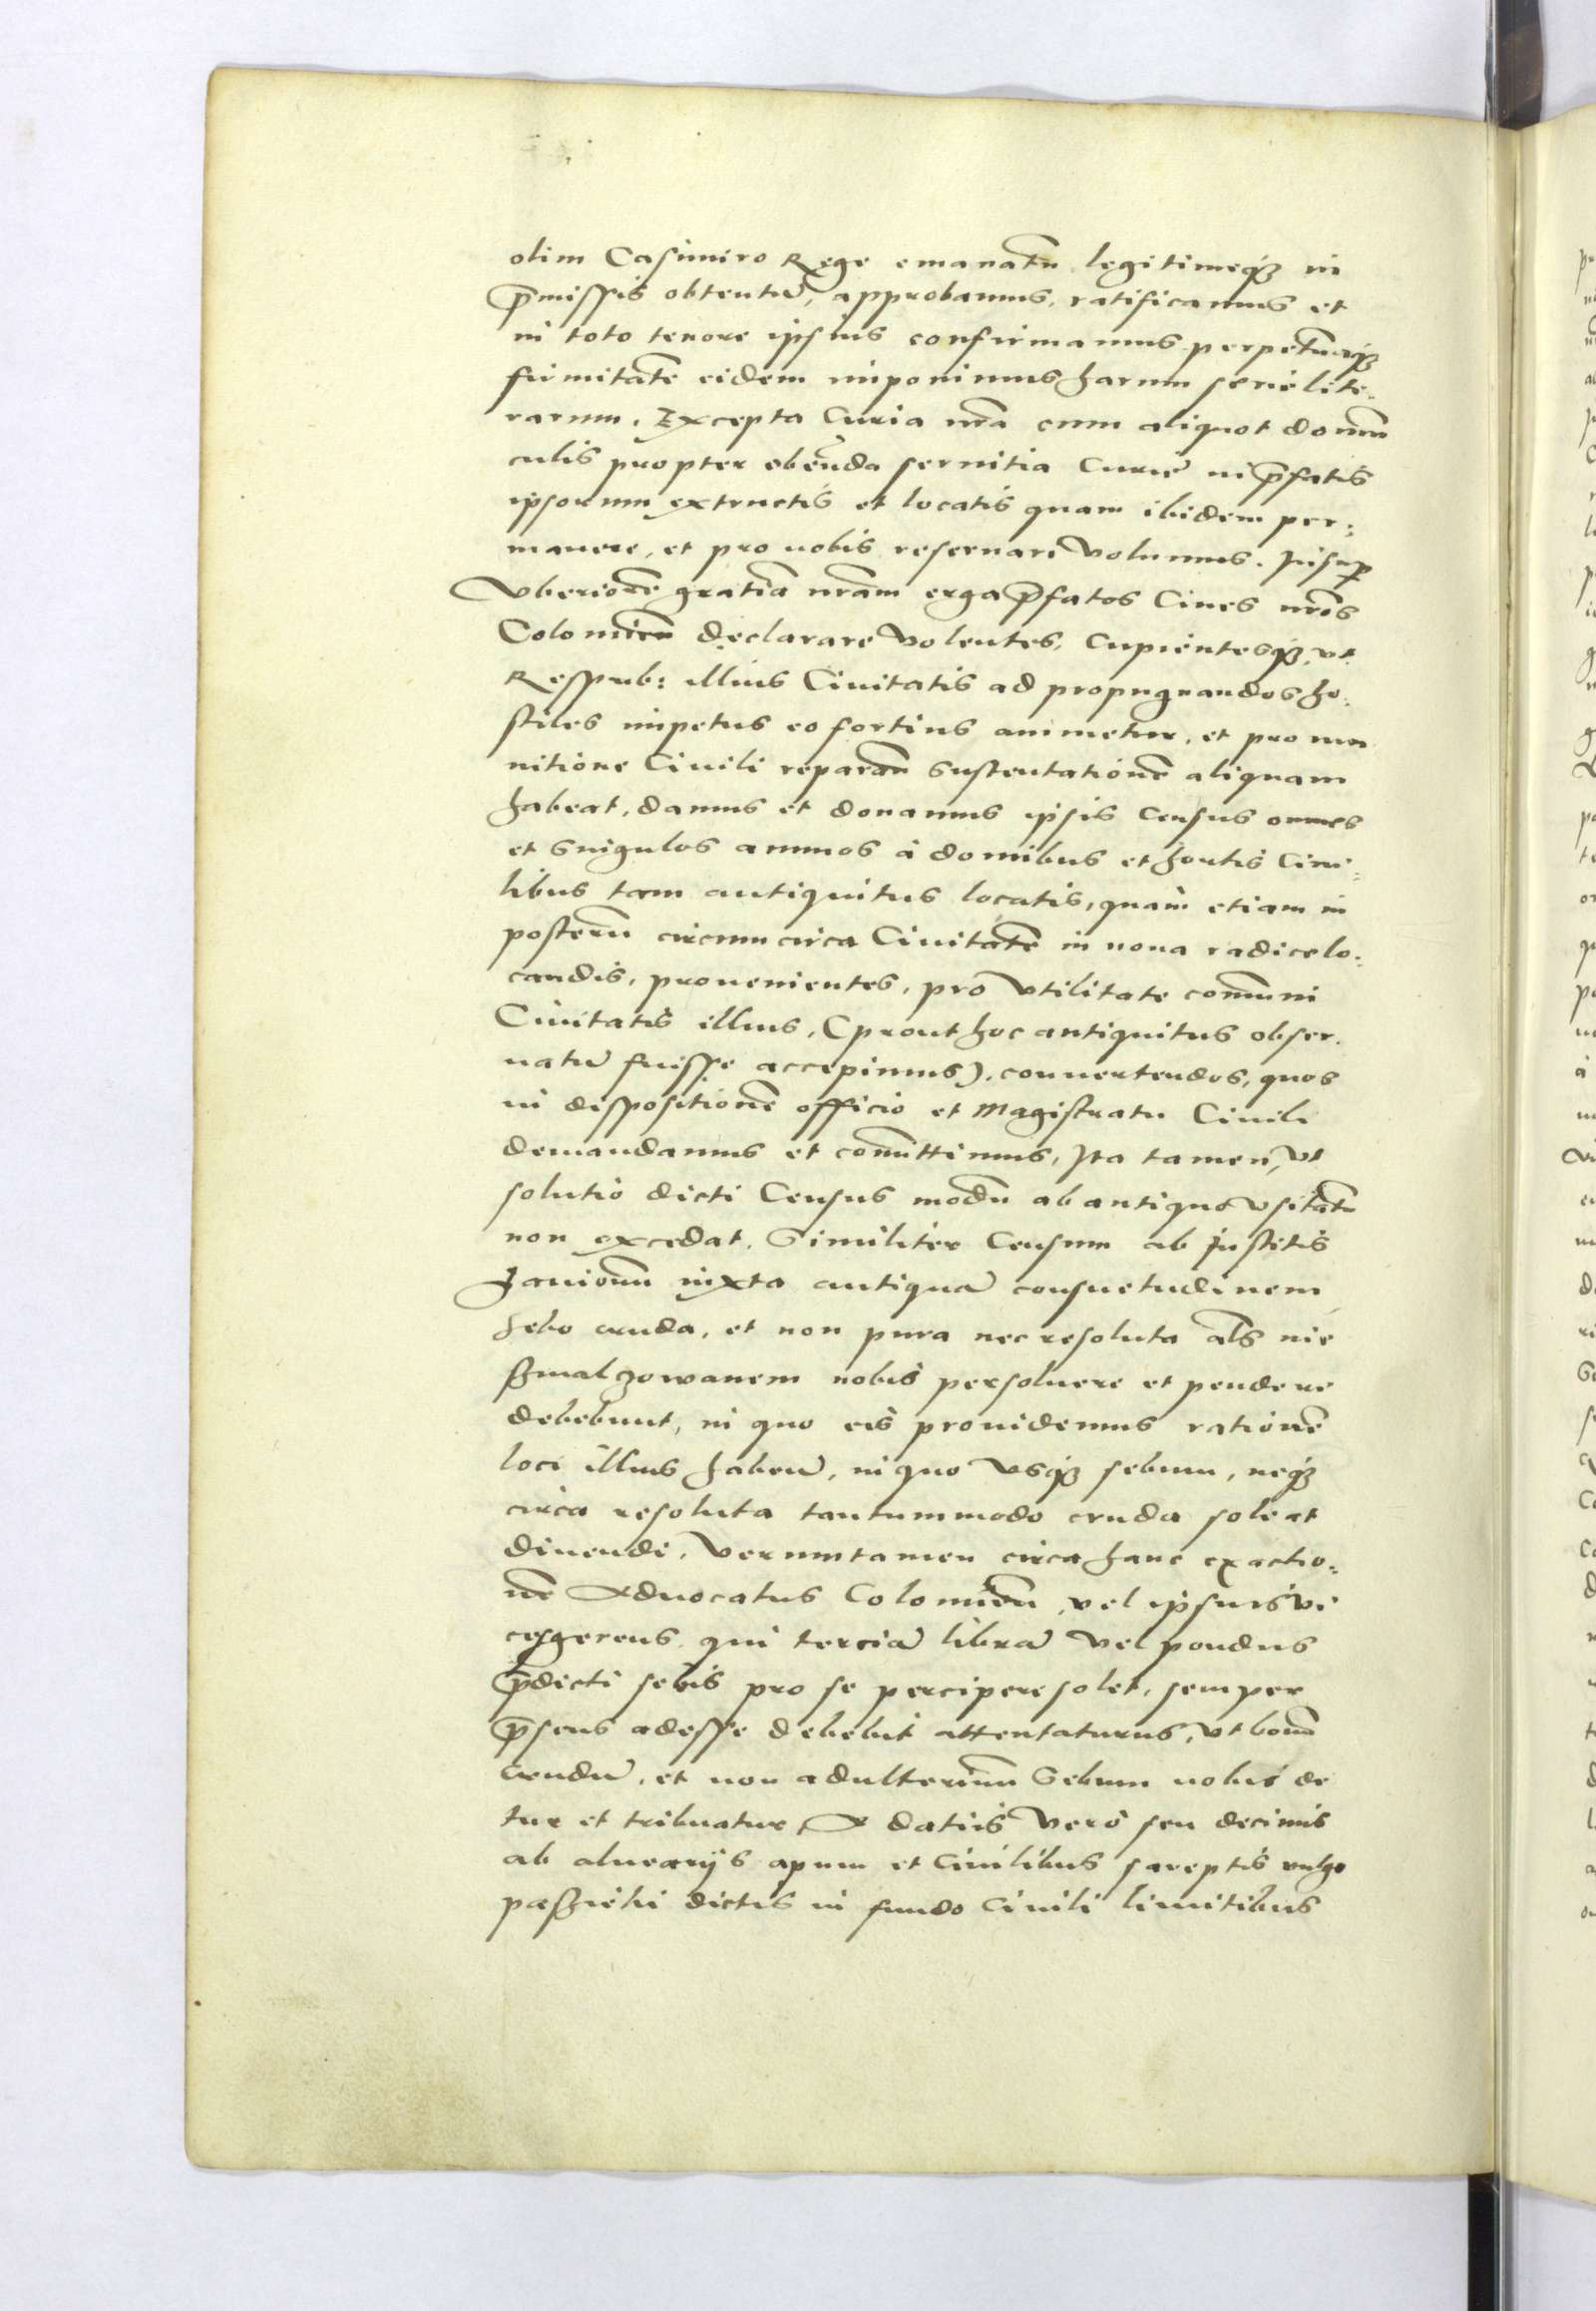 olim Casimiro Rege emanatū legitimeq₃ in
p̄missis obtentū, approbamus, ratificamus et
in toto tenore ipsius confirmamus perpetuāq₃
firmitatē eidem imponimus harum serie lite-
rarum. Excepta Curia nr̄a cum aliquot domū
culis propter obeūda seruitia Curiæ in p̄fatis
ipsorum extructis et locatis quam ibidem per:
manere, et pro nobis reseruari volumus. Insup
Vberiorē gratiā nrām erga p̄fatos Ciues nrōs
Colomien̄ declarare volentes, cupientesq₃, vt
Respub: illius Ciuitatis ad propugnandos ho:
stiles impetus eo fortius animetur, et pro mu
nitione Ciuili reparan̄ sustentationē aliquam
habeat, damus et donamus ipsis Census omnes
et singulos annuos à domibus et hortis Ciui:
libus tam antiquitus locatis, quàm etiam in
posterū circumcirca Ciuitatē in noua radice lo:
candis, prouenientes, pro vtilitate com̄uni
Ciuitatis illius, (prout hoc antiquitus obser.
uatū fuisse accepimus), conuertendos, quos
in dispositionē officio et Magistratu Ciuili
demandamus et com̄ittimus, Ita tamen, vt
solutio dicti Census modū ab antiquo vsitatū
non excedat. Similiter Censum ab Institis
Laniorum iuxta antiquā consuetudinem
sebo crudo, et non pura nec resoluta als nie
szmalzowanem nobis persoluere et pendere
debebunt, in quo eis prouidemus rationē
loci illius habeñ, in quo vsq₃ sebum, neq₃
circa resoluta tantummodo cruda soleat
diuendi. Verumtamen circa hanc exactio:
nē Aduocatus Colomien̄, vel ipsius vi
cesgerens qui terciā librā vel pondus
p̄dicti sebis pro se percipere solet, semper
p̄sens adesse debebit attentaturus, vt bonū
crudū, et non adulterinum Sebum nobis de
tur et tribuatur, A datiis vero seu decimis
ab aluearijs apum et Ciuilibus sareptis vulgo
paszieki dictis in fundo Ciuili limitibus